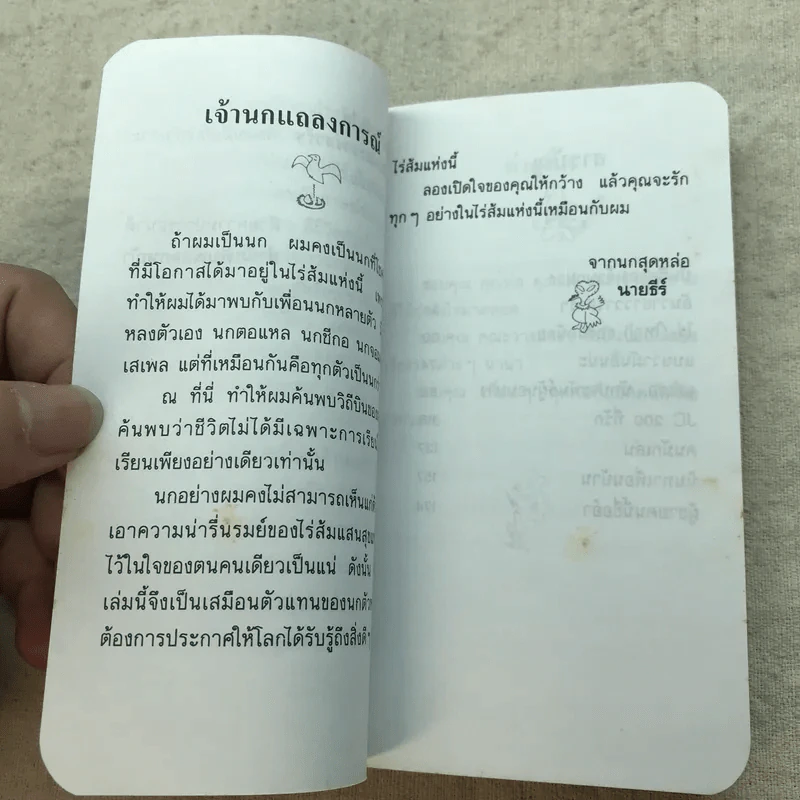 เจ้านกแถลงการณ์
ถ้าผมเป็นนก ผมคงเป็นนกที่
ที่มีโอกาสได้มาอยู่ในไร่ส้มแห่งนี้
ทำให้ผมได้มาพบกับเพื่อนนกหลายตัว
หลงตัวเอง นกตอแหล นกชีกอ
เสเพล แต่ที่เหมือนกันคือทุกตัวเป็นนก
ณ ที่นี่ ทำให้ผมค้นพบวิถีบินของ
ค้นพบว่าชีวิตไม่ได้มีเฉพาะการเรียน
เรียนเพียงอย่างเดียวเท่านั้น
นกอย่างผมคงไม่สามารถเห็นแก่
เอาความน่ารื่นรมย์ของไร่ส้มแสนสุข
ไว้ในใจของตนคนเดียวเป็นแน่ ดังนั้น
เล่มนี้จึงเป็นเสมือนตัวแทนของนก
ต้องการประกาศให้โลกได้รับรู้ถึงสิ่งดี
ไร่ส้มแห่งนี้
ลองเปิดใจของคุณให้กว้าง แล้วคุณจะรัก
ทุกๆ อย่างในไร่ส้มแห่งนี้เหมือนกับผม
จากนกสุดหล่อ
นายธีร์